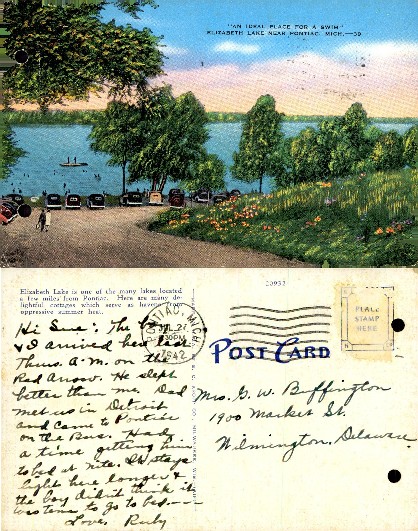 "AN IDEAL PLACE FOR A SWIM"
ELIZABETH LAKE NEAR PONTIAC, MICH.—39
Elizabeth Lake is one of the many lakes located
a few miles from Pontiac. Here are many de-
lightful cottages which serve as havens from
oppressive summer heat.
20932
PONTIAC, MICH.
JUL 27
30PM
1942
PLACE
STAMP
HERE
POST CARD
Hi Sue: The
& I arrived here last
Thurs. A.M. on the
Red Arrow. He slept
better than me. Dad
met us in Detroit
and came to Pontiac
on the Bus. Had
a time getting him
to bed at nite. It stays
light here longer &
the boy didn't think it
was time to go to bed.
Love, Ruby
Mrs. G. W. Buffington
1900 Market St.
Wilmington, Delaware